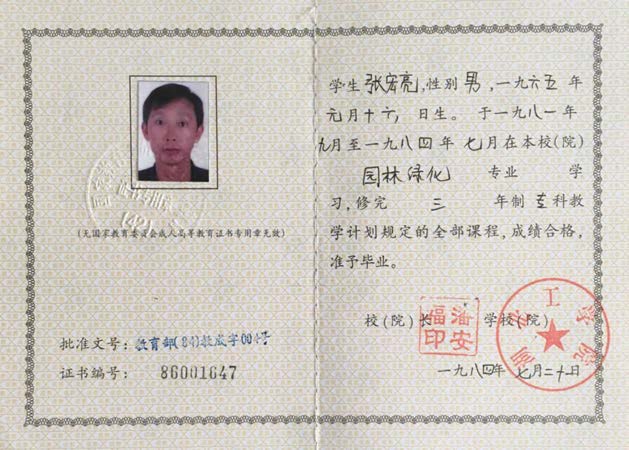 (无国家教育委员会成人高等教育证书专用章无效)
批准文号：教育部(84)教成字004号
证书编号：86001647
学生张宏亮,性别男,一九六五年
元月十六日生。于一九八一年
九月至一九八四年七月在本校(院)
园林绿化 专业 学
习,修完 三 年制专科教
学计划规定的全部课程,成绩合格,
准予毕业。
校(院)长 学校(院)
潘安福印
工学院
一九八四年七月二十日